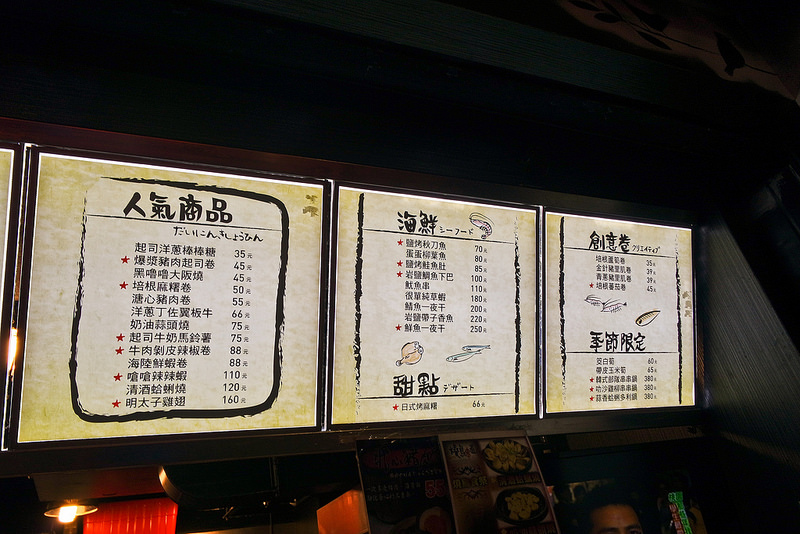 人氣商品
だいにんきしょうひん
起司洋蔥棒棒糖 35元
★爆漿豬肉起司卷 45元
黑嚕嚕大阪燒 45元
★培根麻糬卷 50元
溏心豬肉卷 55元
洋蔥丁佐翼板牛 66元
奶油蒜頭燒 75元
★起司牛奶馬鈴薯 75元
★牛肉剝皮辣椒卷 88元
海陸鮮蝦卷 88元
★嗆嗆辣辣蝦 110元
清酒蛤蜊燒 120元
★明太子雞翅 160元
海鮮 シーフード
★鹽烤秋刀魚 70元
蛋蛋柳葉魚 80元
★鹽烤鮭魚肚 85元
★岩鹽鯛魚下巴 100元
魷魚串 110元
很單純草蝦 180元
鯖魚一夜干 200元
岩鹽帶子香魚 220元
★鮮魚一夜干 250元
甜點 デザート
★日式烤麻糬 66元
創意卷 クリエイティブ
培根蘆筍卷 35元
金針豬里肌卷 39元
青蔥豬里肌卷 39元
★培根蕃茄卷 45元
季節限定
茭白筍 60元
帶皮玉米筍 65元
★韓式部隊串串鍋 380元
★叻沙雞柳串串鍋 380元
★蒜香蛤蜊多利鍋 380元